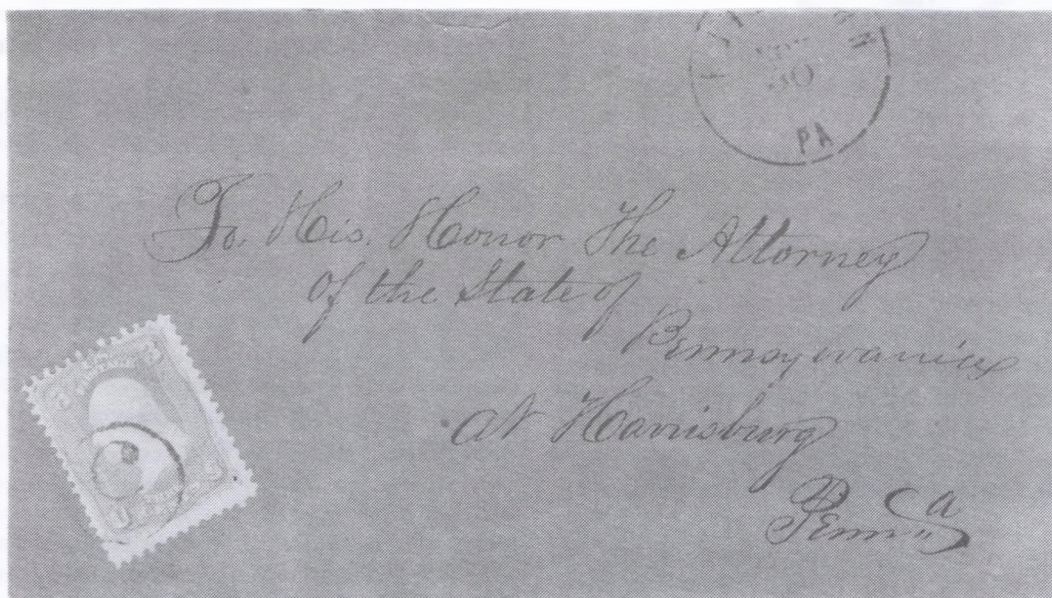 30
PA
To. His. Honor The Attorney
of the State of
Pennsywanice
at Harrisburg
Penn a
3 3
U